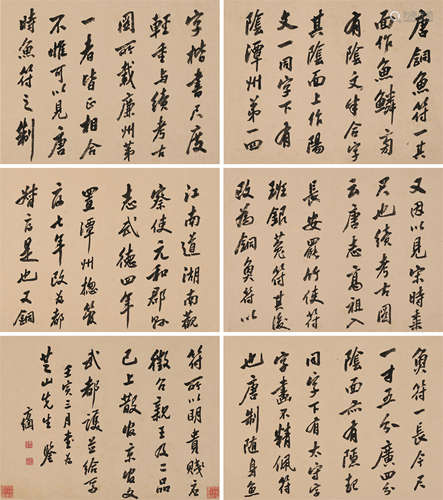 唐銅魚符一其
面作魚鱗旁
有陰文半合字
其陰面上作陽
文一同字下有
陰潭州第一四
字楷書尺度
輕重与續考古
圖所載廉州第
一者皆正相合
不惟可以見唐
時魚符之制
又因以見宋時
尺也續考古圖
云唐志高祖入
長安罷竹使符
班銀菟符其後
改為銅魚符以
江南道湖南觀
察使元和郡縣
志武德四年
置潭州總管
府七年改為都
督府是也又銅
魚符一長今尺
一寸五分廣四分
陰面亦有陰起
同字下有太守字
字畫不精佩符
也唐制隨身魚
符所以明貴賤應
徵召親王及二品
已上散官京官文
武都護並給焉
壬寅三月書為
芝山先生鑒